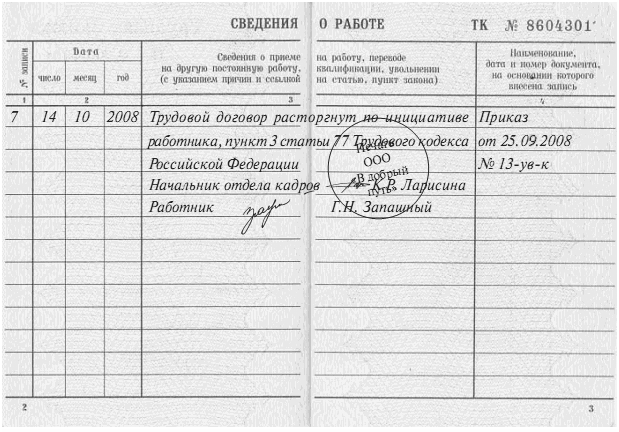 СВЕДЕНИЯ О РАБОТЕ ТК № 8604301
№ записи
Дата
число месяц год
Сведения о приеме на работу, переводе
на другую постоянную работу, квалификации, увольнении
(с указанием причин и ссылкой на статью, пункт закона)
Наименование,
дата и номер документа,
на основании которого
внесена запись
1 2 3 4
7 14 10 2008 Трудовой договор расторгнут по инициативе Приказ
работника, пункт 3 статьи 77 Трудового кодекса от 25.09.2008
Российской Федерации № 13-ув-к
Начальник отдела кадров К.Р. Ларисина
Работник Г.Н. Запашный
Печать
ООО
"В добрый
путь»
2 3